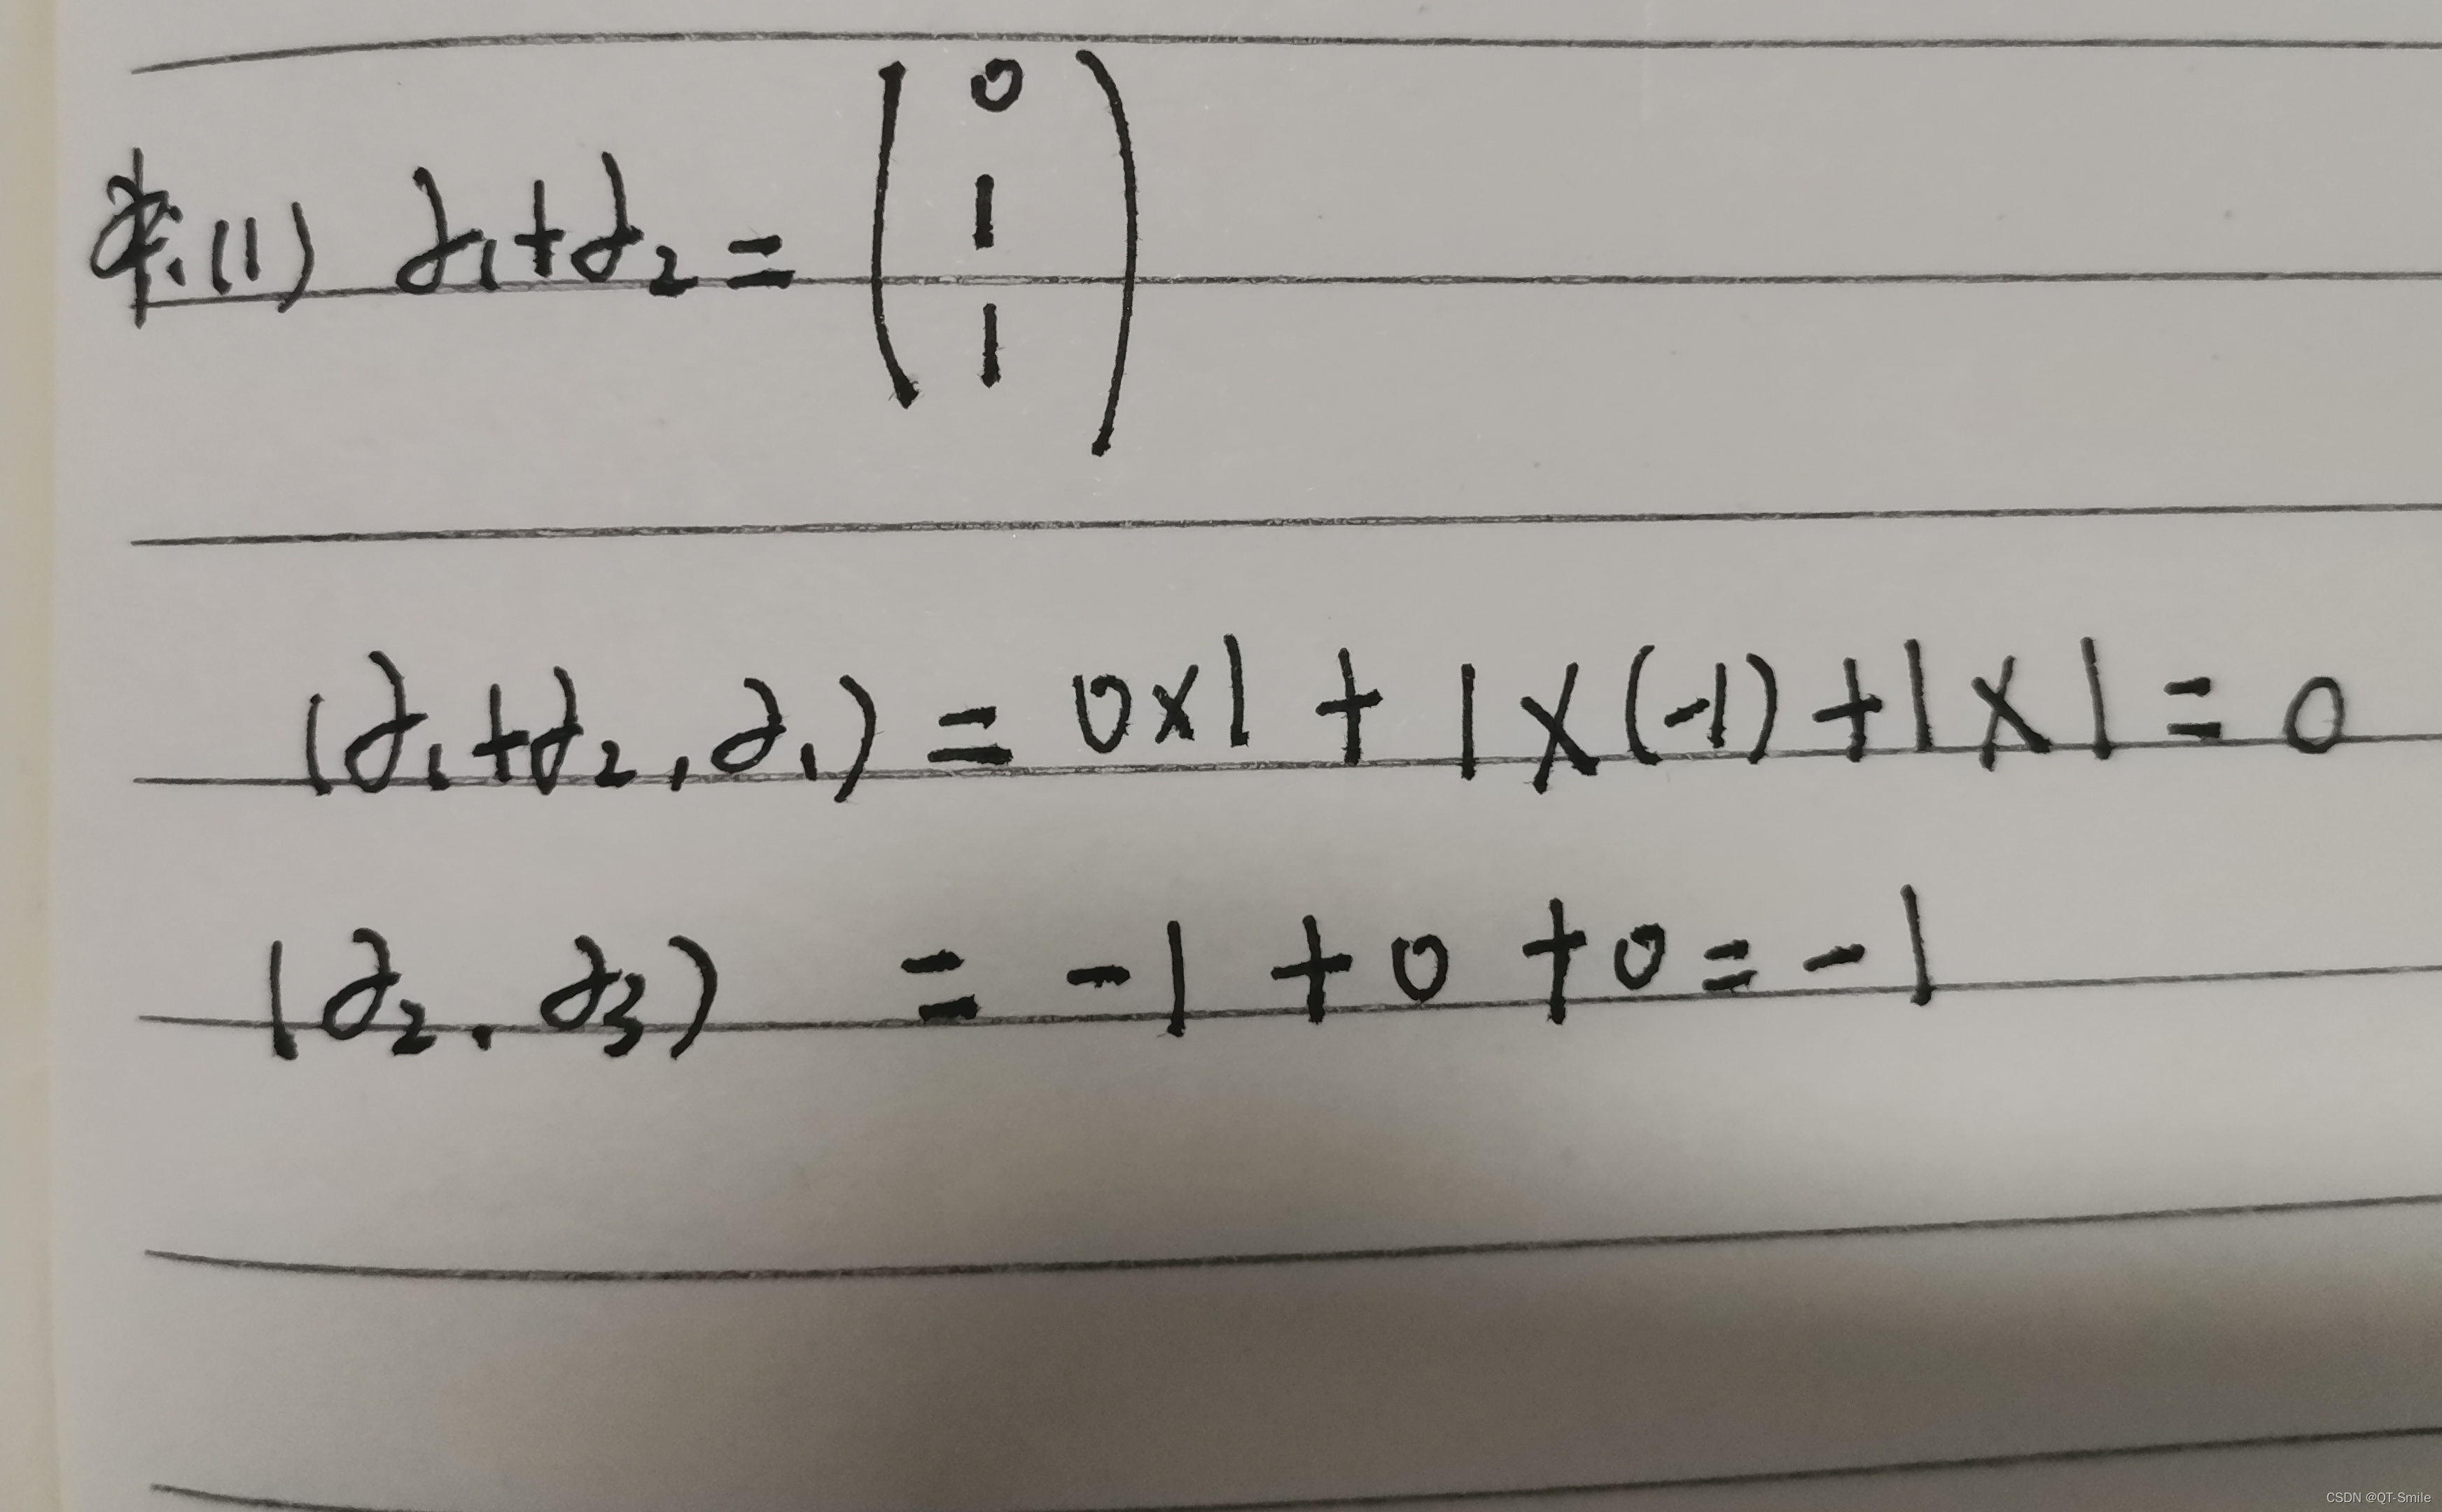 (1) α₁+α₂ = (0
1
1)
(α₁+α₂, α₁) = 0×1 + 1×(-1) + 1×1 = 0
(α₂, α₃) = -1 + 0 + 0 = -1
CSDN @QT-Smile